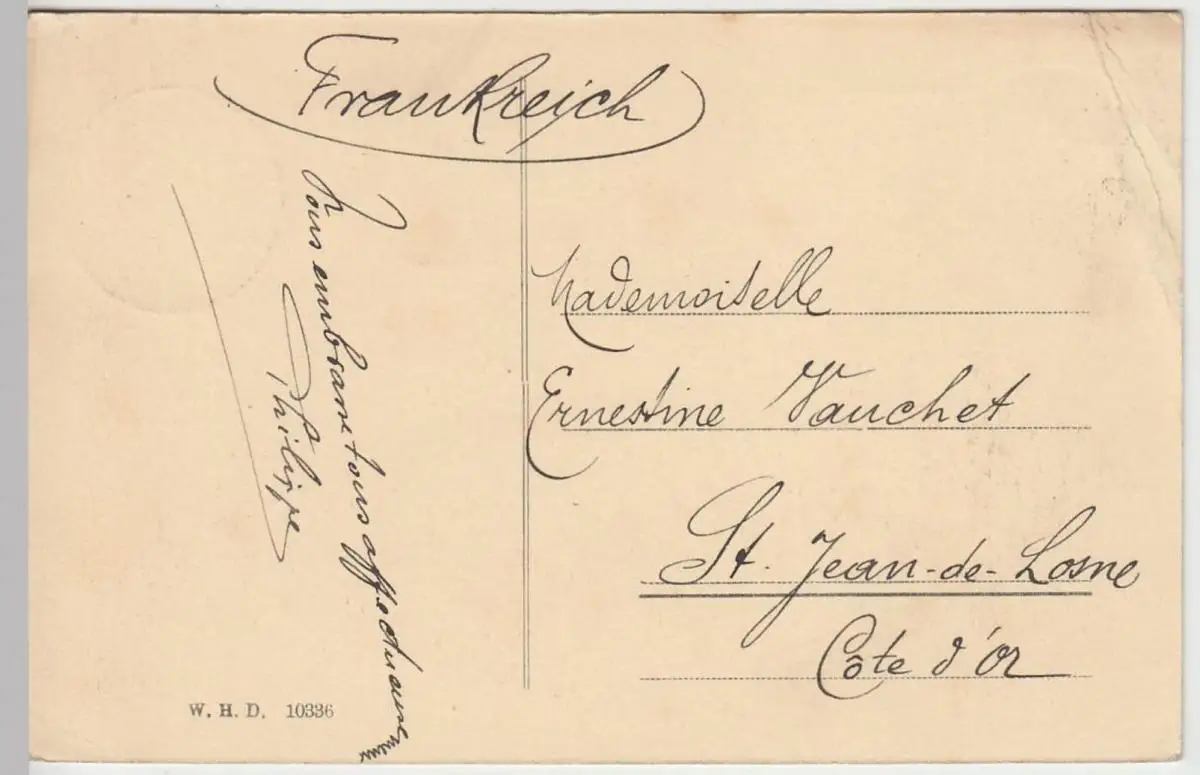 Frankreich
Vous embrasse tous affectueusement
Philippe
Mademoiselle
Ernestine Vauchet
St. Jean-de-Losne
Côte d'Or
W. H. D. 10336